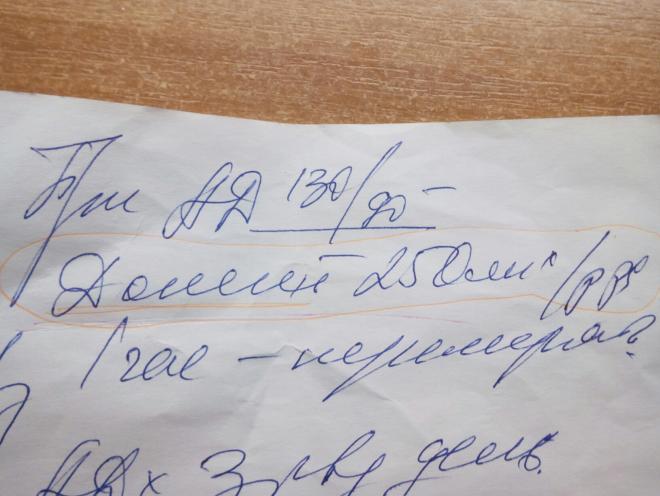 При АД 130/90
Допегит 250мг
1 час – перемерять
АД х 3 р в день.